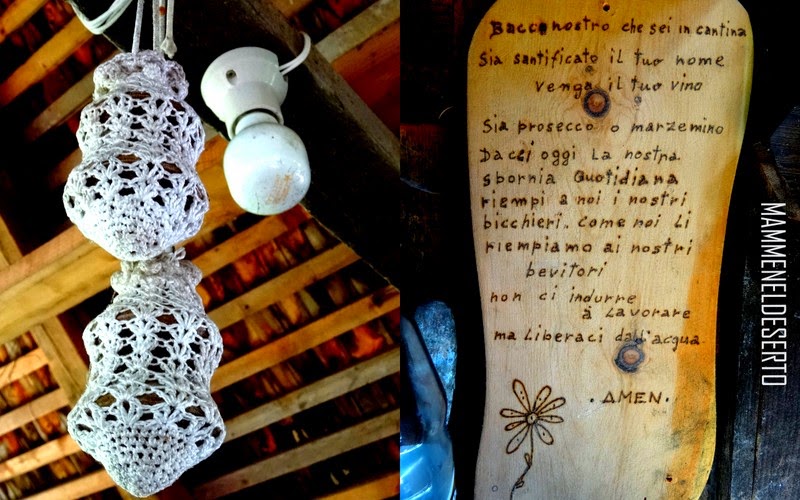 Bacco nostro che sei in cantina
Sia santificato il tuo nome
venga il tuo vino
Sia prosecco o marzemino
Dacci oggi la nostra
sbornia quotidiana
riempi a noi i nostri
bicchieri. come noi li
riempiamo ai nostri
bevitori
non ci indurre
à lavorare
ma liberaci dall'acqua
. AMEN.
MAMMENELDESERTO